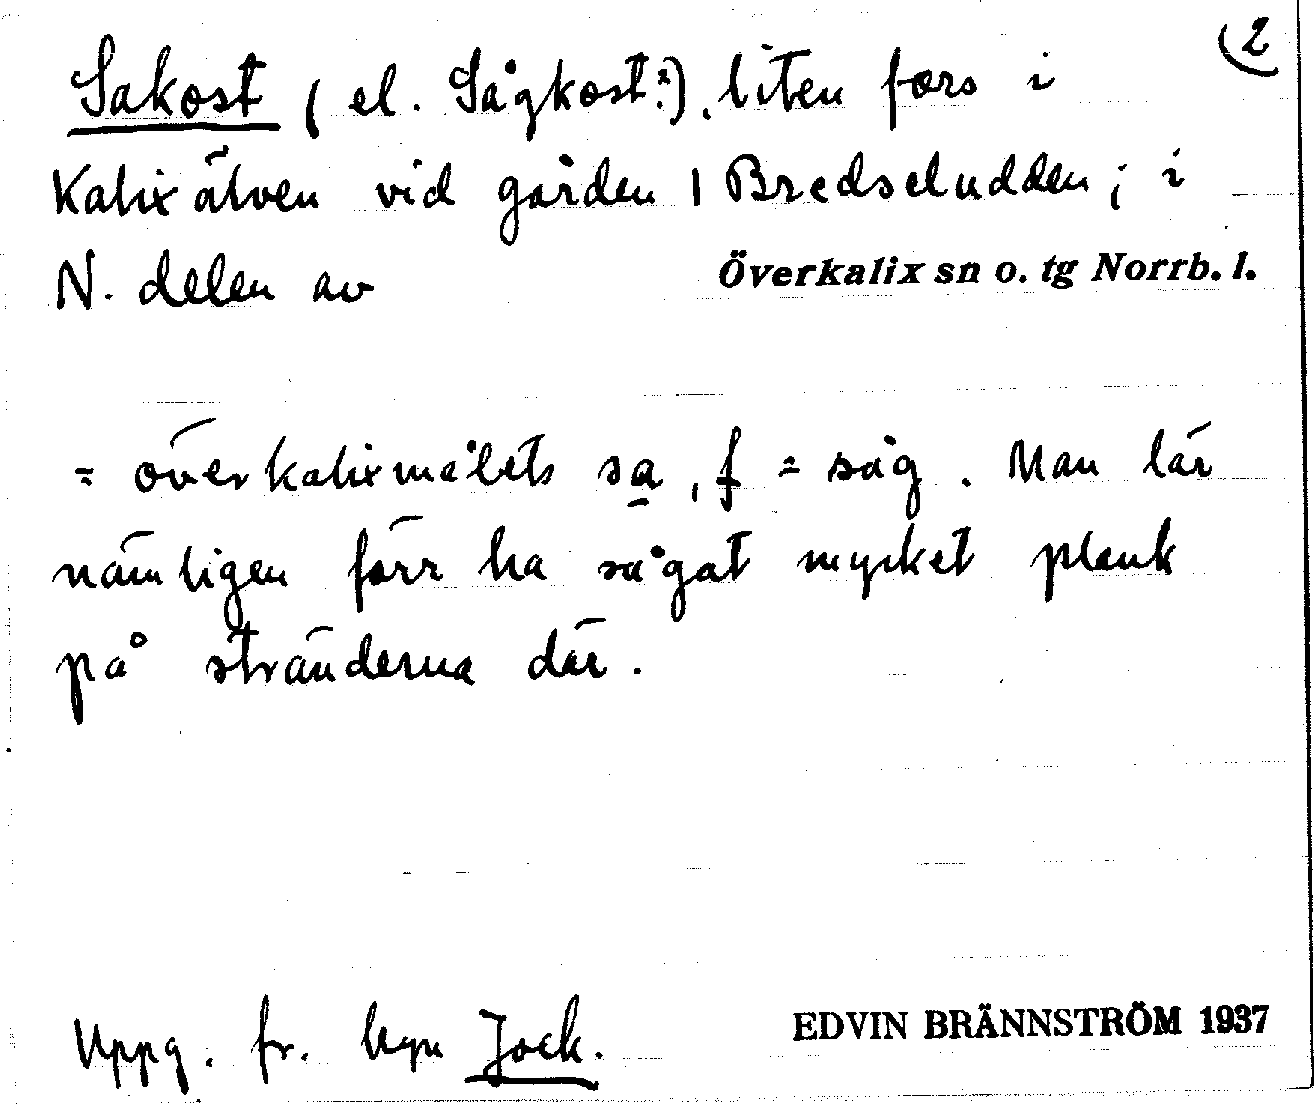 2
Sakost (el. Sågkost?), liten fors i
Kalixälven vid gården 1 Bredseludden; i
N. delen av Överkalix sn o. tg Norrb. l.
= överkalixmålets sa, f = såg. Man lär
nämligen förr ha sågat mycket plank
på stränderna där.
Uppg. fr. byn Jock. EDVIN BRÄNNSTRÖM 1937